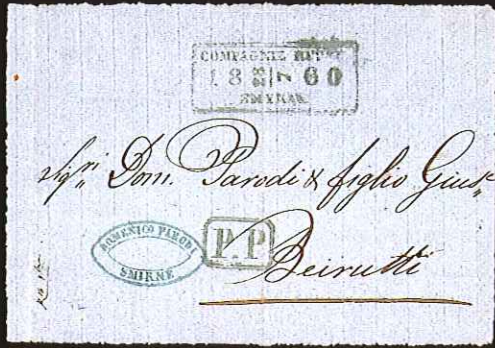 COMPAGNIE RUSSE
18 23/7 60
SMYRNE
Sigri Dom. Parodi & figlio Gius.
DOMENICO PARODI
SMIRNE
P.P
Beirutti